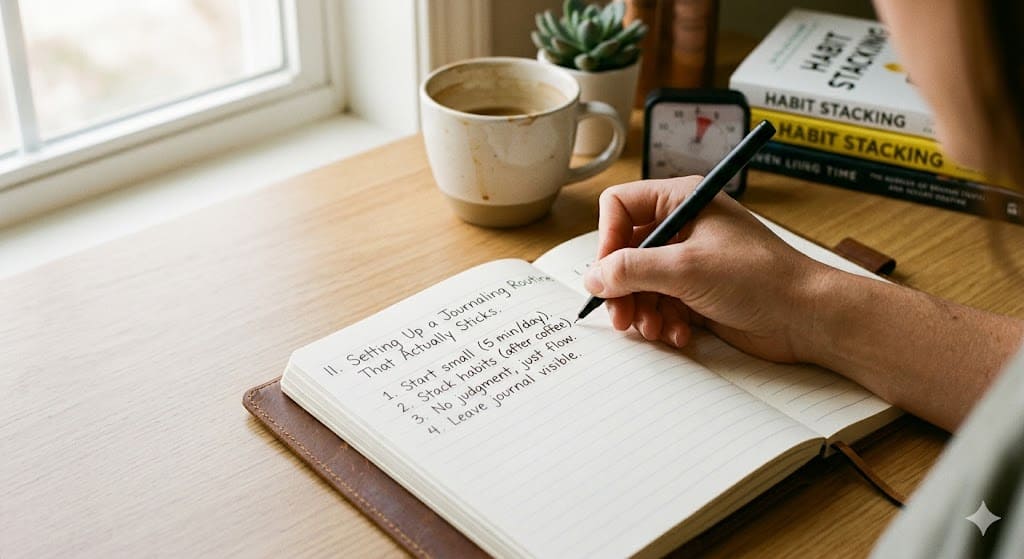 11. Setting Up a Journaling Routine
That Actually Sticks.
1. Start small (5 min/day).
2. Stack habits (after coffee).
3. No judgment, just flow.
4. Leave journal visible.
HABIT
STACKING
HABIT STACKING
HABIT STACKING
LIVING TIME